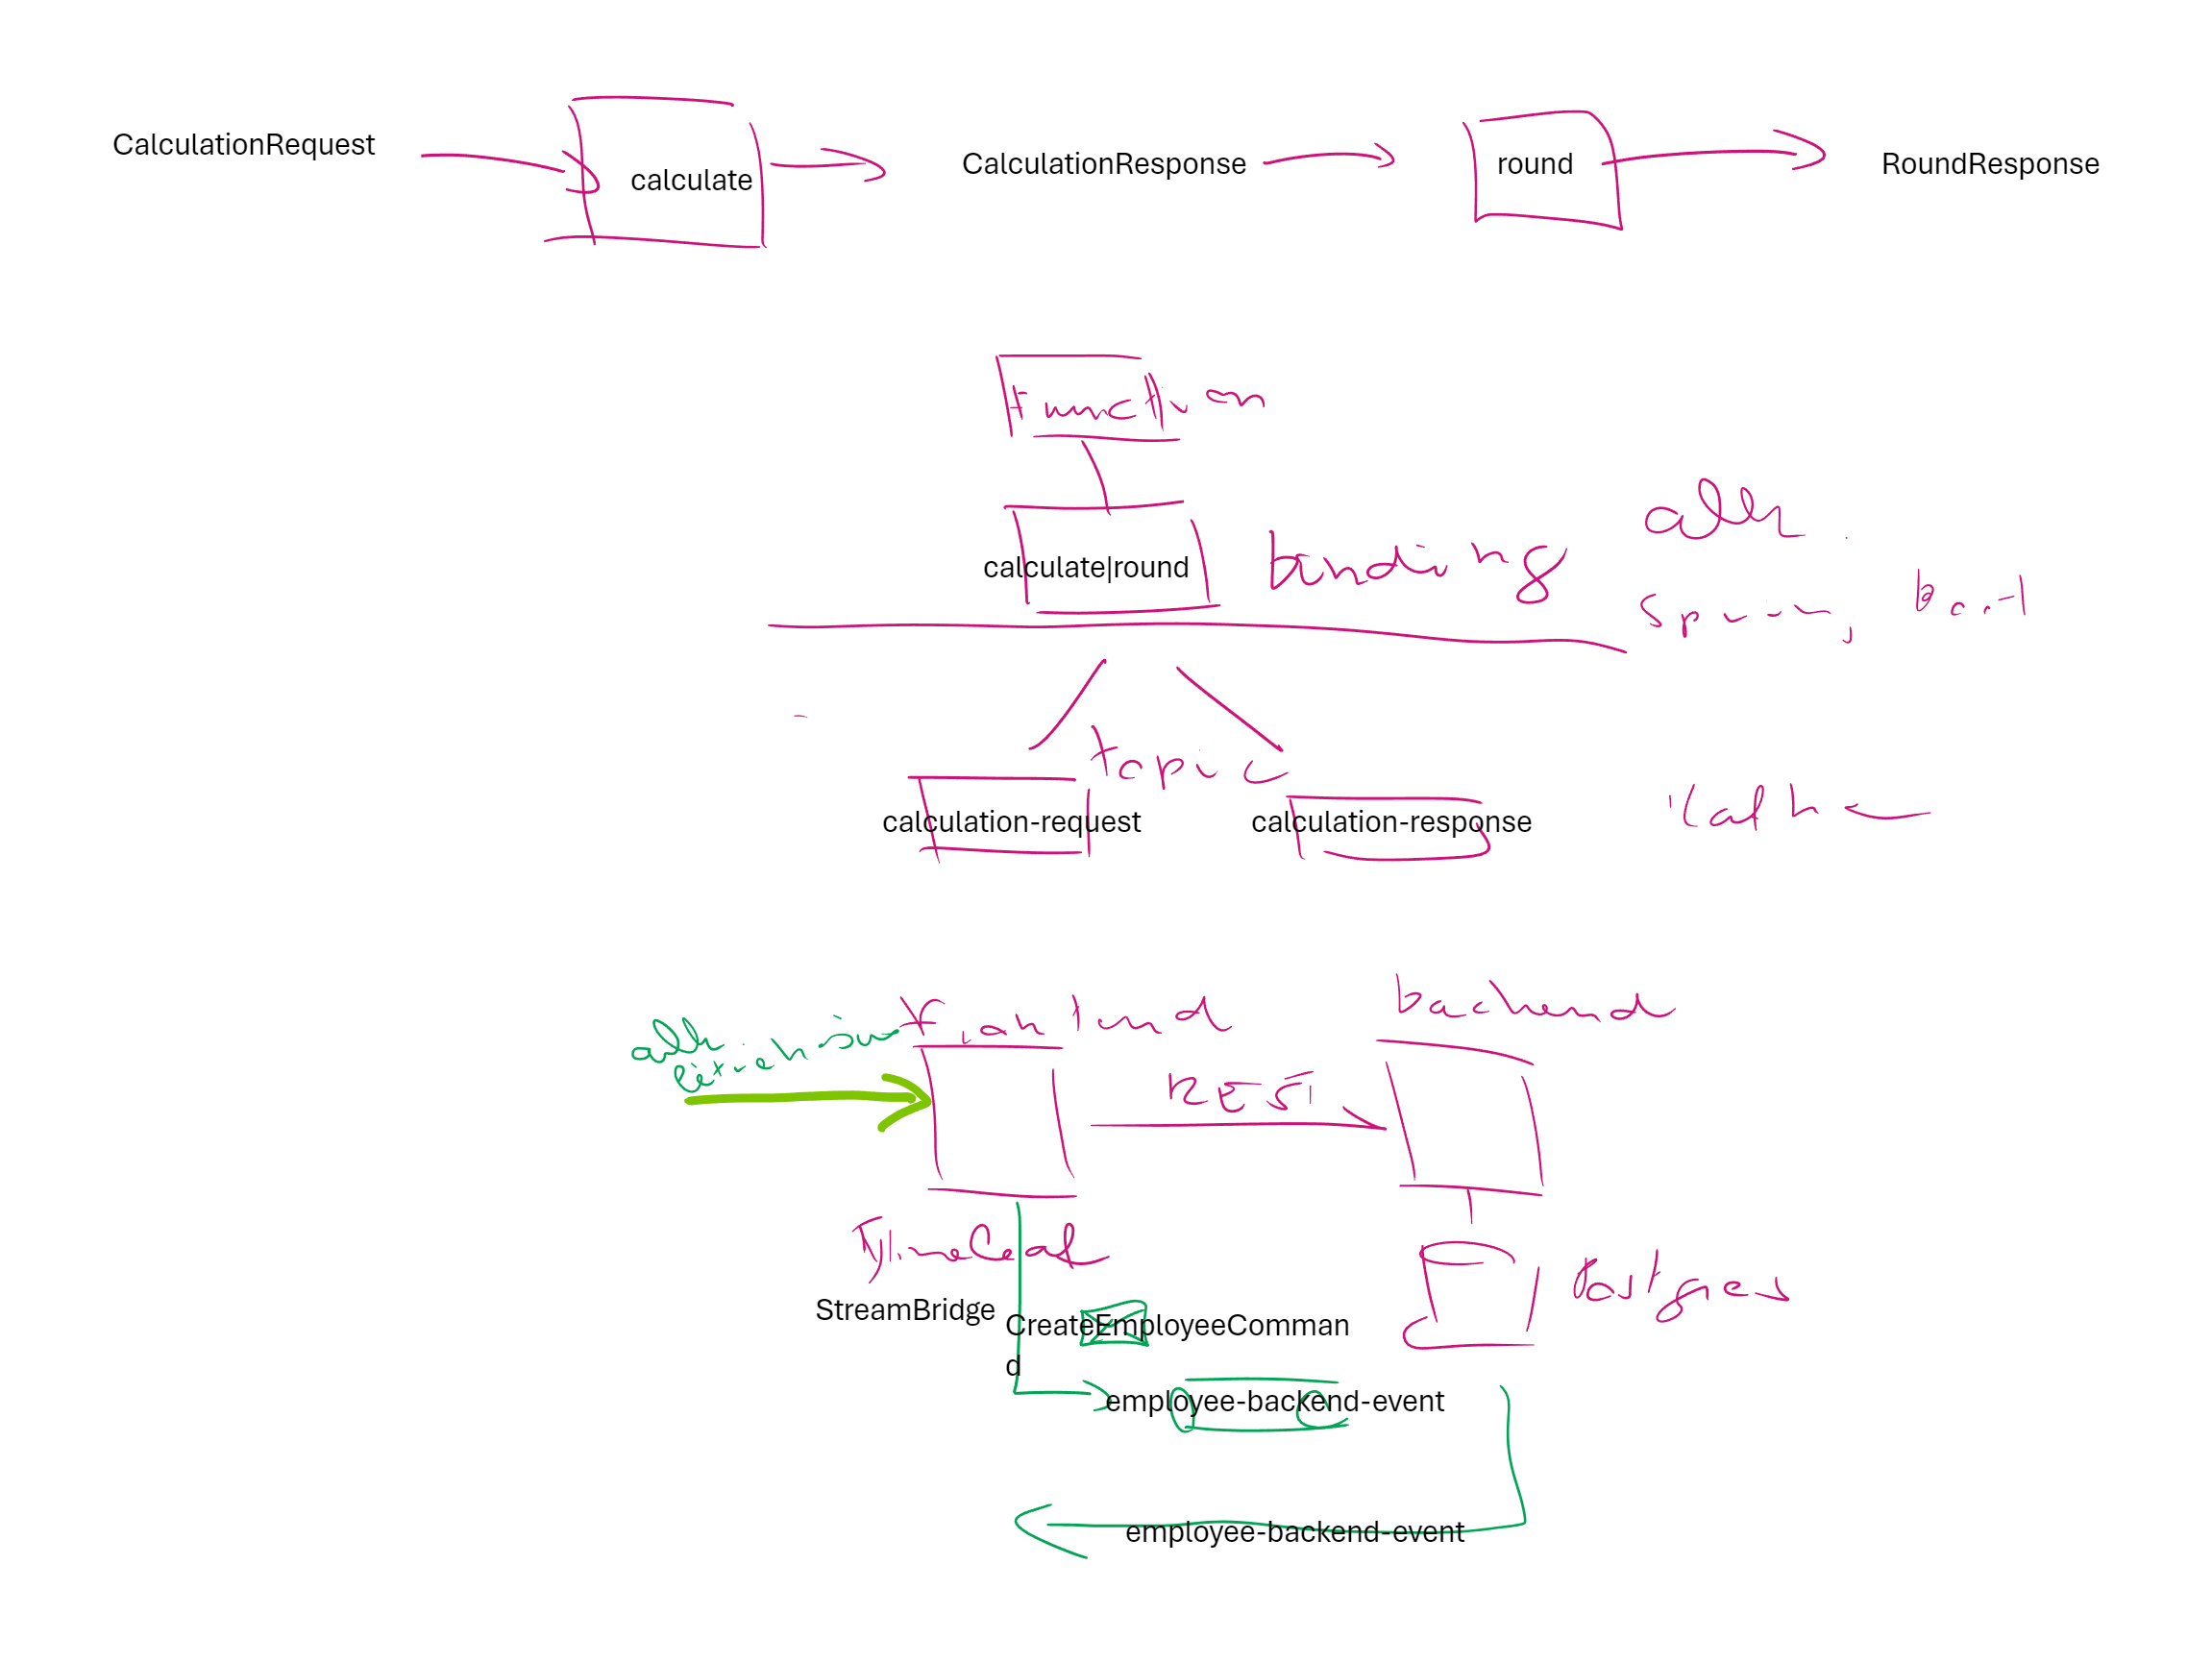 CalculationRequest
calculate
CalculationResponse
round
RoundResponse
Function
calculate|round
binding
alk.
Spring boot
topic
calculation-request
calculation-response
Kafka
alk
létrehozás
frontend
backend
REST
StreamBridge
Postgres
CreateEmployeeComman
d
employee-backend-event
employee-backend-event